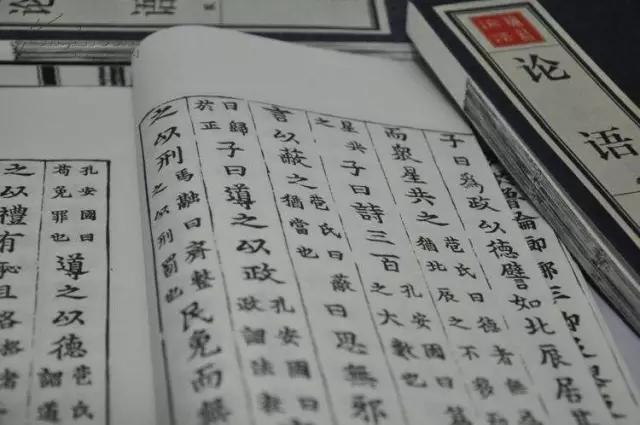 论语
论语
子曰爲政以德譬如北辰居其
而衆星共之
苞氏曰德者無
猶北辰之不移
星共
之
子曰詩三百
孔安國曰
之大數也
言以蔽之
苞氏曰蔽
猶當也
曰思無邪
曰歸
於正
子曰導之以政
孔安國曰
政謂法教
之以刑
馬融曰齊整
之以刑罰也
民免而無
孔安國曰
苟免罪也
導之以德
苞氏
謂道
之以禮有恥且格
格者